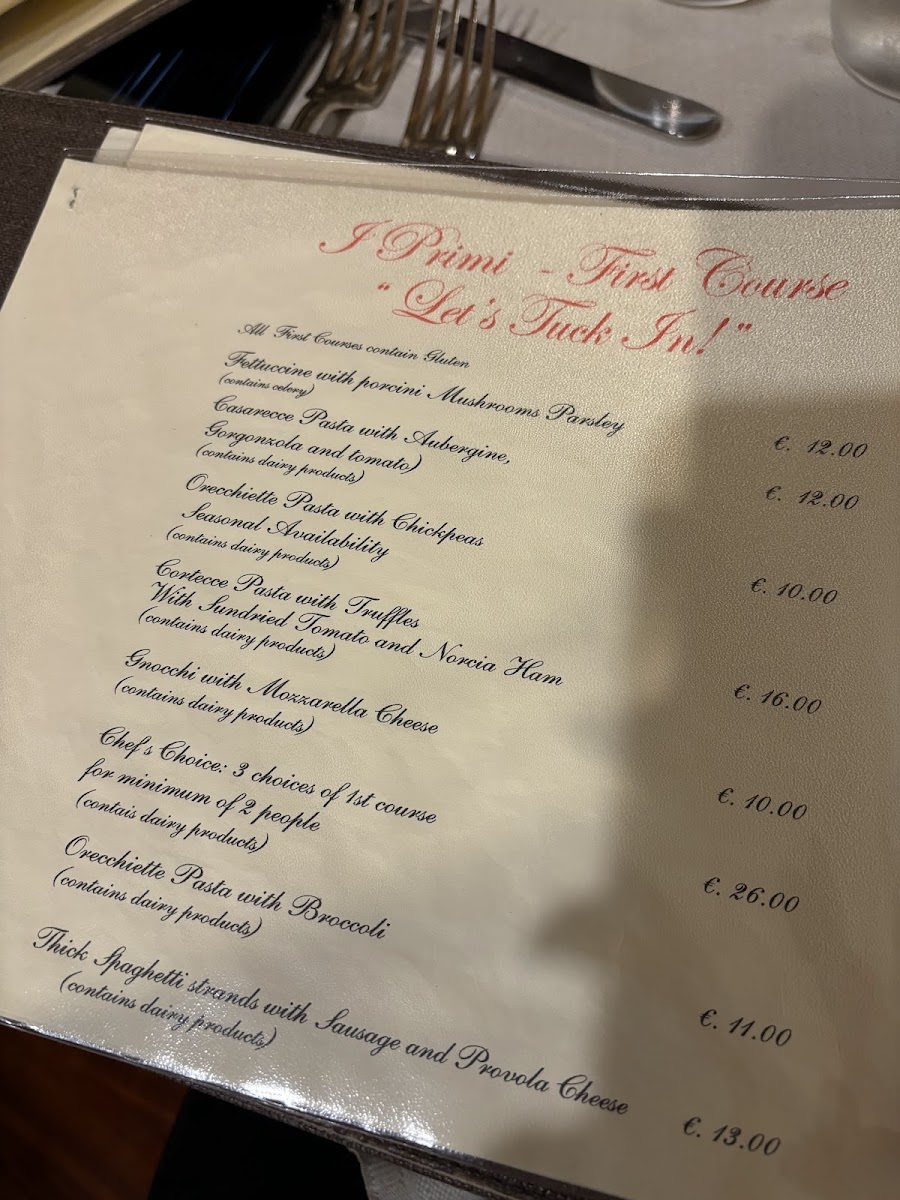 I Primi - First Course
"Let's Tuck In!"
All First Courses contain Gluten
Fettuccine with porcini Mushrooms Parsley
(contains celery)
€. 12.00
Casarecce Pasta with Aubergine,
Gorgonzola and tomato)
(contains dairy products)
€. 12.00
Orecchiette Pasta with Chickpeas
Seasonal Availability
(contains dairy products)
€. 10.00
Cortecce Pasta with Truffles
With Sundried Tomato and Norcia Ham
(contains dairy products)
€. 16.00
Gnocchi with Mozzarella Cheese
(contains dairy products)
€. 10.00
Chef's Choice: 3 choices of 1st course
for minimum of 2 people
(contais dairy products)
€. 26.00
Orecchiette Pasta with Broccoli
(contains dairy products)
€. 11.00
Thick Spaghetti strands with Sausage and Provola Cheese
(contains dairy products)
€. 13.00